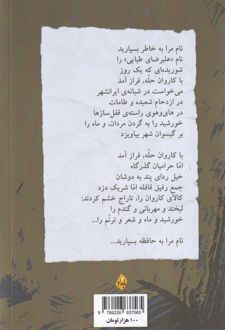 نام مرا به خاطر بسپارید
نام «علیرضای طبایی» را
شوریده‌ای که یک روز
با کاروان حلّه، فراز آمد
می‌خواست در شبانه‌ی ایرانشهر
در ازدحام شعبده و طامات
در های‌وهوی راسته‌ی قفل‌سازها
خورشید را به گردن مردان، و ماه را
بر گیسوان شهر بیاویزد
با کاروان حلّه، فراز آمد
امّا حرامیان گذرگاه
خیل ردای پند به دوشان
جمع رفیق قافله امّا شریک دزد
کالای کاروان را، تاراج خشم کردند:
لبخند و مهربانی و گندم را
خورشید و ماه و شعر و ترنّم را...
نام مرا به حافظه بسپارید...
9 786226 637565
۱۰۰ هزار تومان